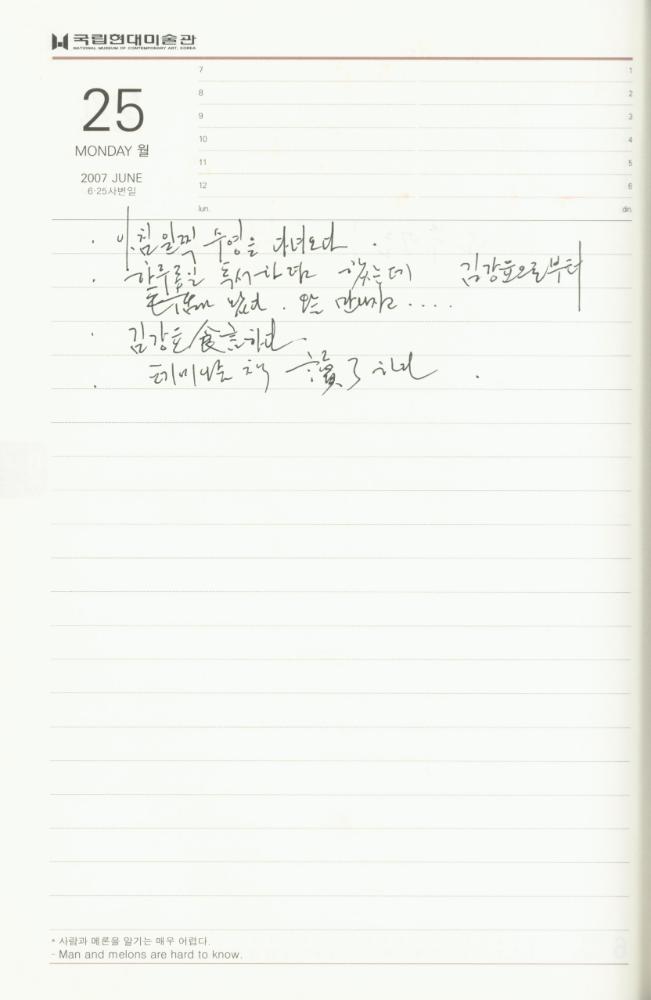 국립현대미술관
NATIONAL MUSEUM OF CONTEMPORARY ART, KOREA
25
MONDAY 월
2007 JUNE
6·25사변일
7
8
9
10
11
12
lun.
1
2
3
4
5
6
din.
· 아침 일찍 수영을 다녀오다.
· 하루종일 독서하려 했는데 김강호으로부터
왔다. 오늘 만나자고 ....
· 김강호 食 하다.
· 책 讀了하다.
* 사람과 메론을 알기는 매우 어렵다.
- Man and melons are hard to know.